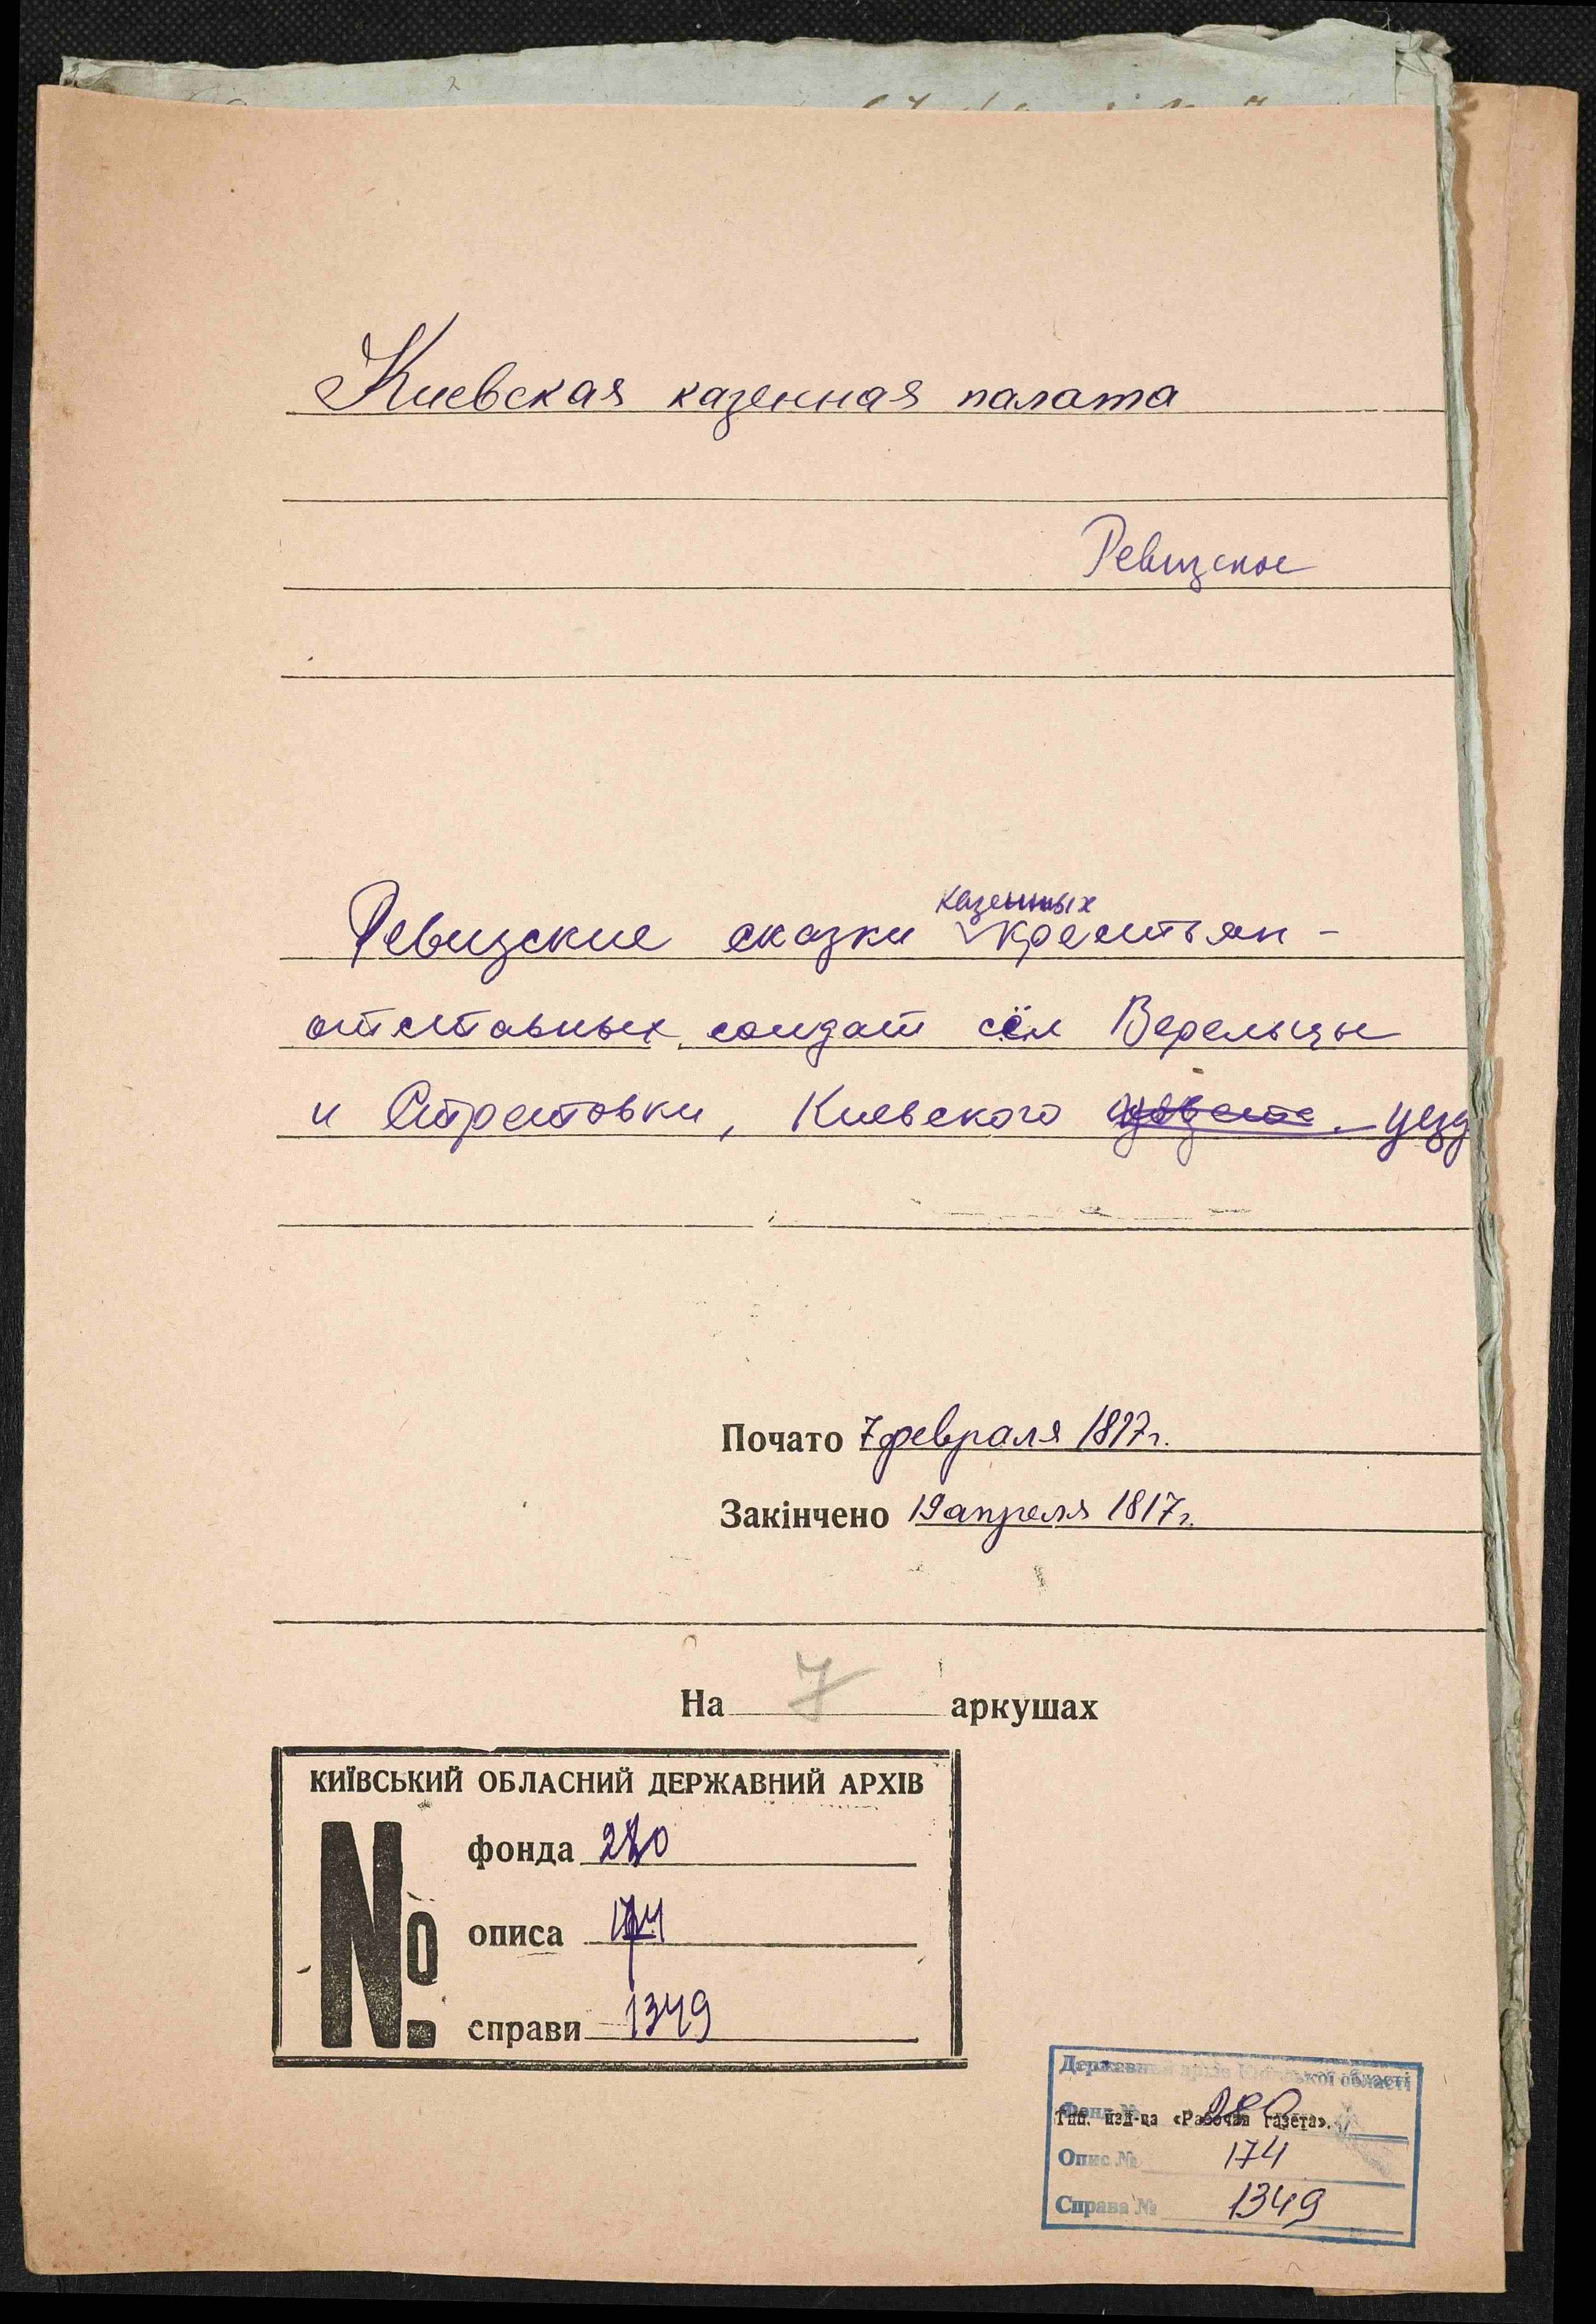 Киевская казенная палата
Ревизское
казенных
Ревизские сказки крестьян-
отставных солдат сёл
и Стретовки, Киевского уезд
Почато 7 февраля 1817г.
Закінчено 19 апреля 1817г.
На 7 аркушах
КИЇВСЬКИЙ ОБЛАСНИЙ ДЕРЖАВНИЙ АРХІВ
№
фонда 280
описа 174
справи 1349
Державний архів Київської області
Фонд № 280
Тип. изд-ва «Рабочая газета».
Опис № 174
Справа № 1349